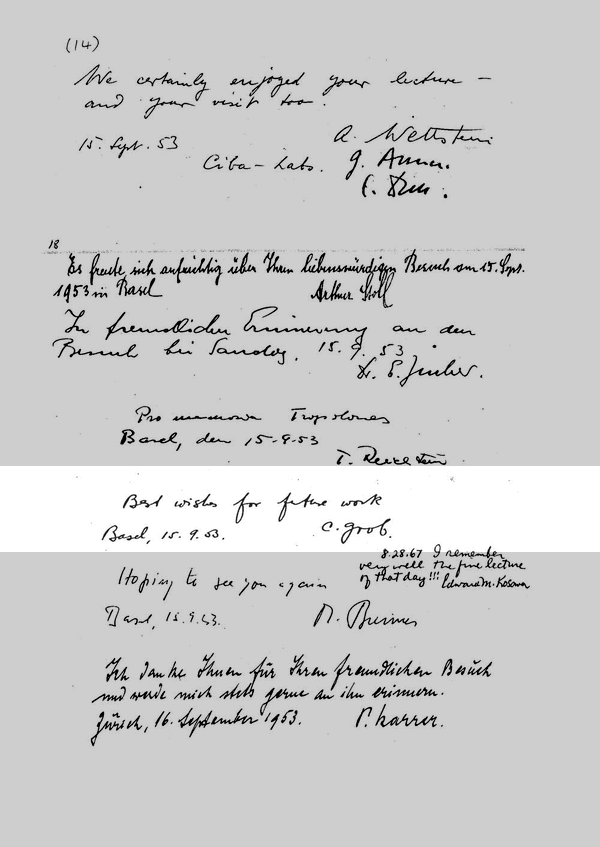 (14)
We certainly enjoyed your lecture –
and your visit too.
15. Sept. 53
A. Wettstein
Ciba – Labs. G. Anner.
18
Es freute sich aufrichtig über Ihren liebenswürdigen Besuch am 15. Sept.
1953 in Basel Arthur Stoll
In freundlicher Erinnerung an den
Besuch bei Sandoz, 15. 9. 53.
Dr. E.
Pro memoria Tropolones
Basel, den 15-9-53
T. Reichstein
Best wishes for future work
Basel, 15. 9. 53. C. Grob.
8.28.67 I remember
very well the fine lecture
of that day!!! Edward M. Kosower
Hoping to see you again
Basel, 15.9.53. M. Brenner
Ich danke Ihnen für Ihren freundlichen Besuch
und werde mich stets gerne an ihn erinnern.
Zürich, 16. September 1953. P. Karrer.